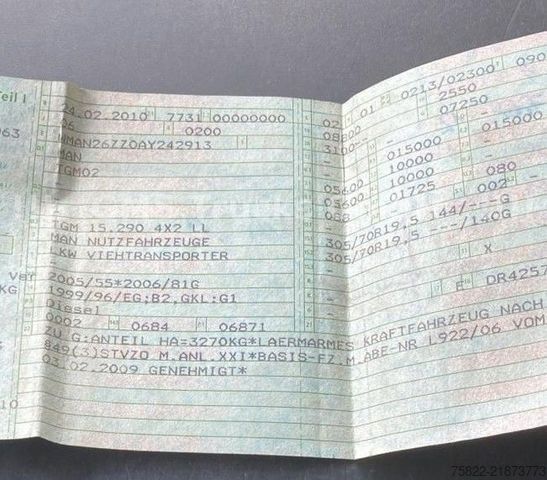 Teil I
24.02.2010 7731 00000000
06 0200
WMAN26ZZ0AY242913
MAN
TGM02
TGM 15.290 4X2 LL
MAN NUTZFAHRZEUGE
LKW VIEHTRANSPORTER
2005/55*2006/81G
1999/96/EG;B2,GKL:G1
Diesel
0002 0684 06871
ZU G:ANTEIL HA=3270KG*LAERMARMES KRAFTFAHRZEUG NACH
849(3)STVZO M.ANL.XXI*BASIS-FZ.M.ABE-NR L922/06 VOM
03.02.2009 GENEHMIGT*
01 0213/02300 090
2550
08800 07250
3100-
- 015000 015000
- 10000
05600 10000
03600 01725 080
088 - 002
305/70R19,5 144/---G
305/70R19,5 ---/140G
X
F DR4257
063
Ver
KG
10
75822-21873773